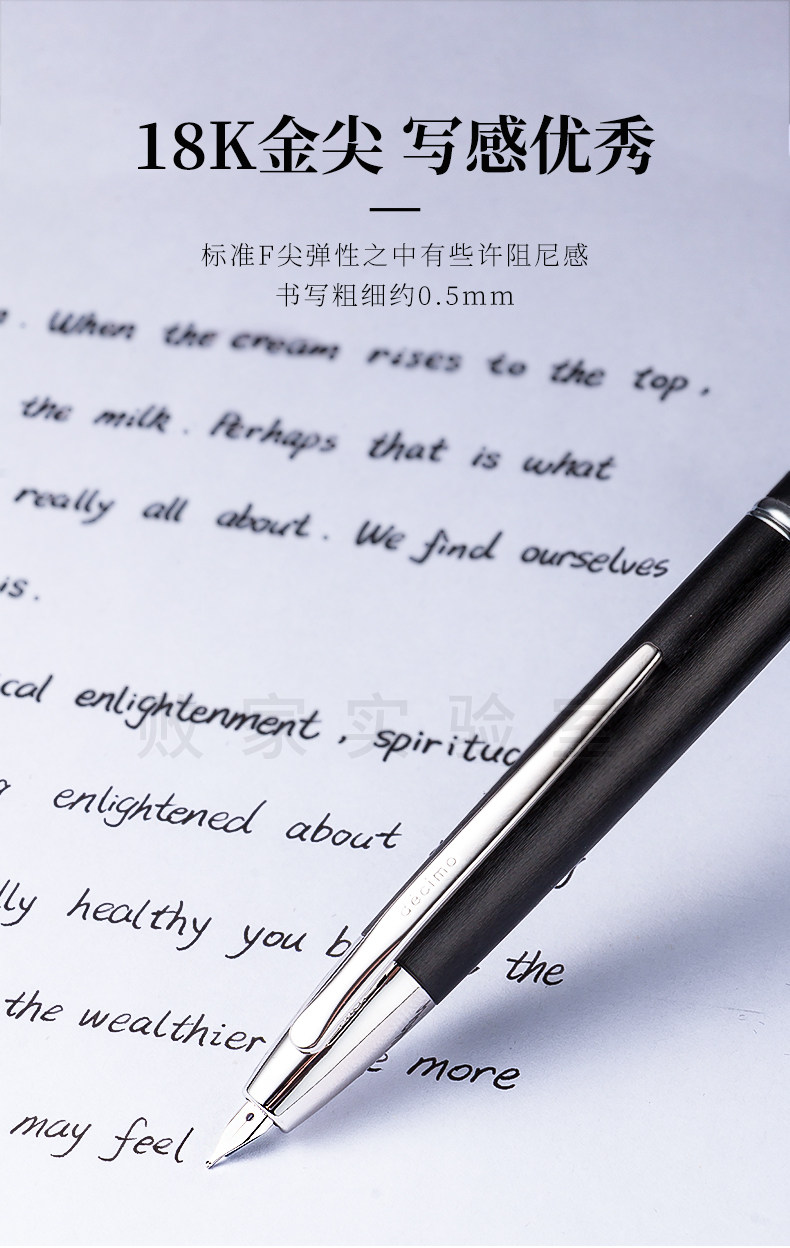 18K金尖 写感优秀
标准F尖弹性之中有些许阻尼感
书写粗细约0.5mm
. When the cream rises to the top,
the milk. Perhaps that is what
really all about. We find ourselves
is.
cal enlightenment, spiritua
败家实验室
enlightened about
decimo
lly healthy you b the
the wealthier e more
may feel